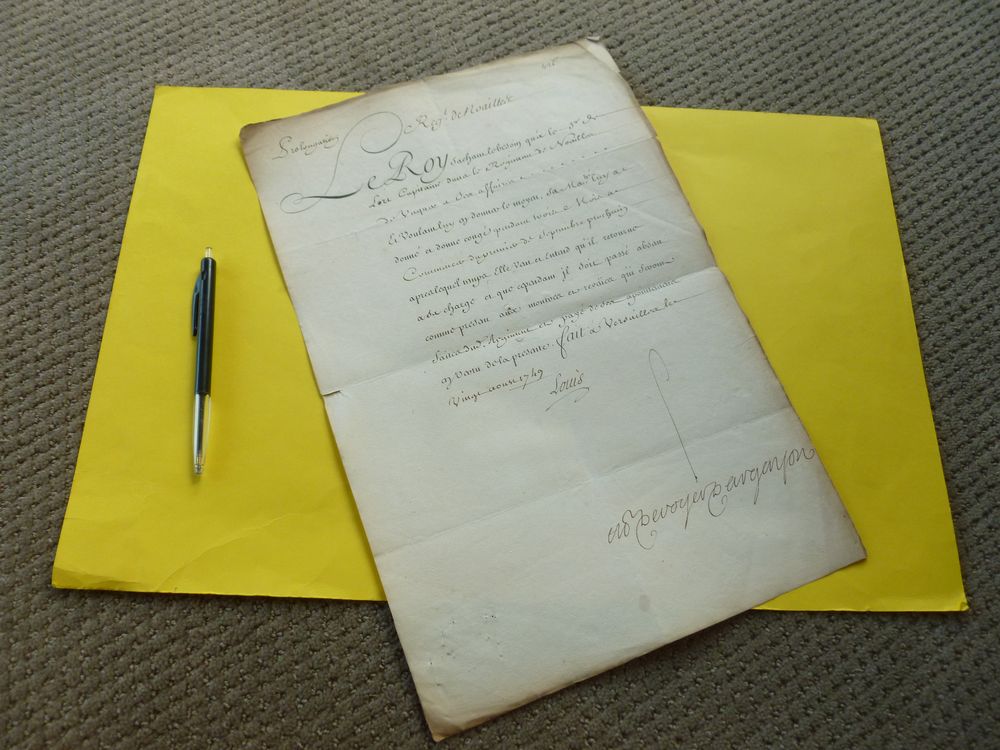 Prolongation
Reg.t de Noailles
Le Roy sachant le besoin que le Sr. de
Capitaine dans le Regiment de Noailles
de vaquer a ses affaires
Et voulant luy en donner le moyen, sa Majesté luy a
donné et donne congé pendant trois Mois a
Commencer du premier de Septembre prochain
apres lequel temps Elle veut et Entend qu'il retourne
a sa charge et que cependant jl soit passé absent
comme present aux montres et reveües qui seront
faites dud. Regiment et payé de ses appointements
en vertu de la presente. fait a Versailles le
vingt aoust 1749
Louis
de voyer d'argenson